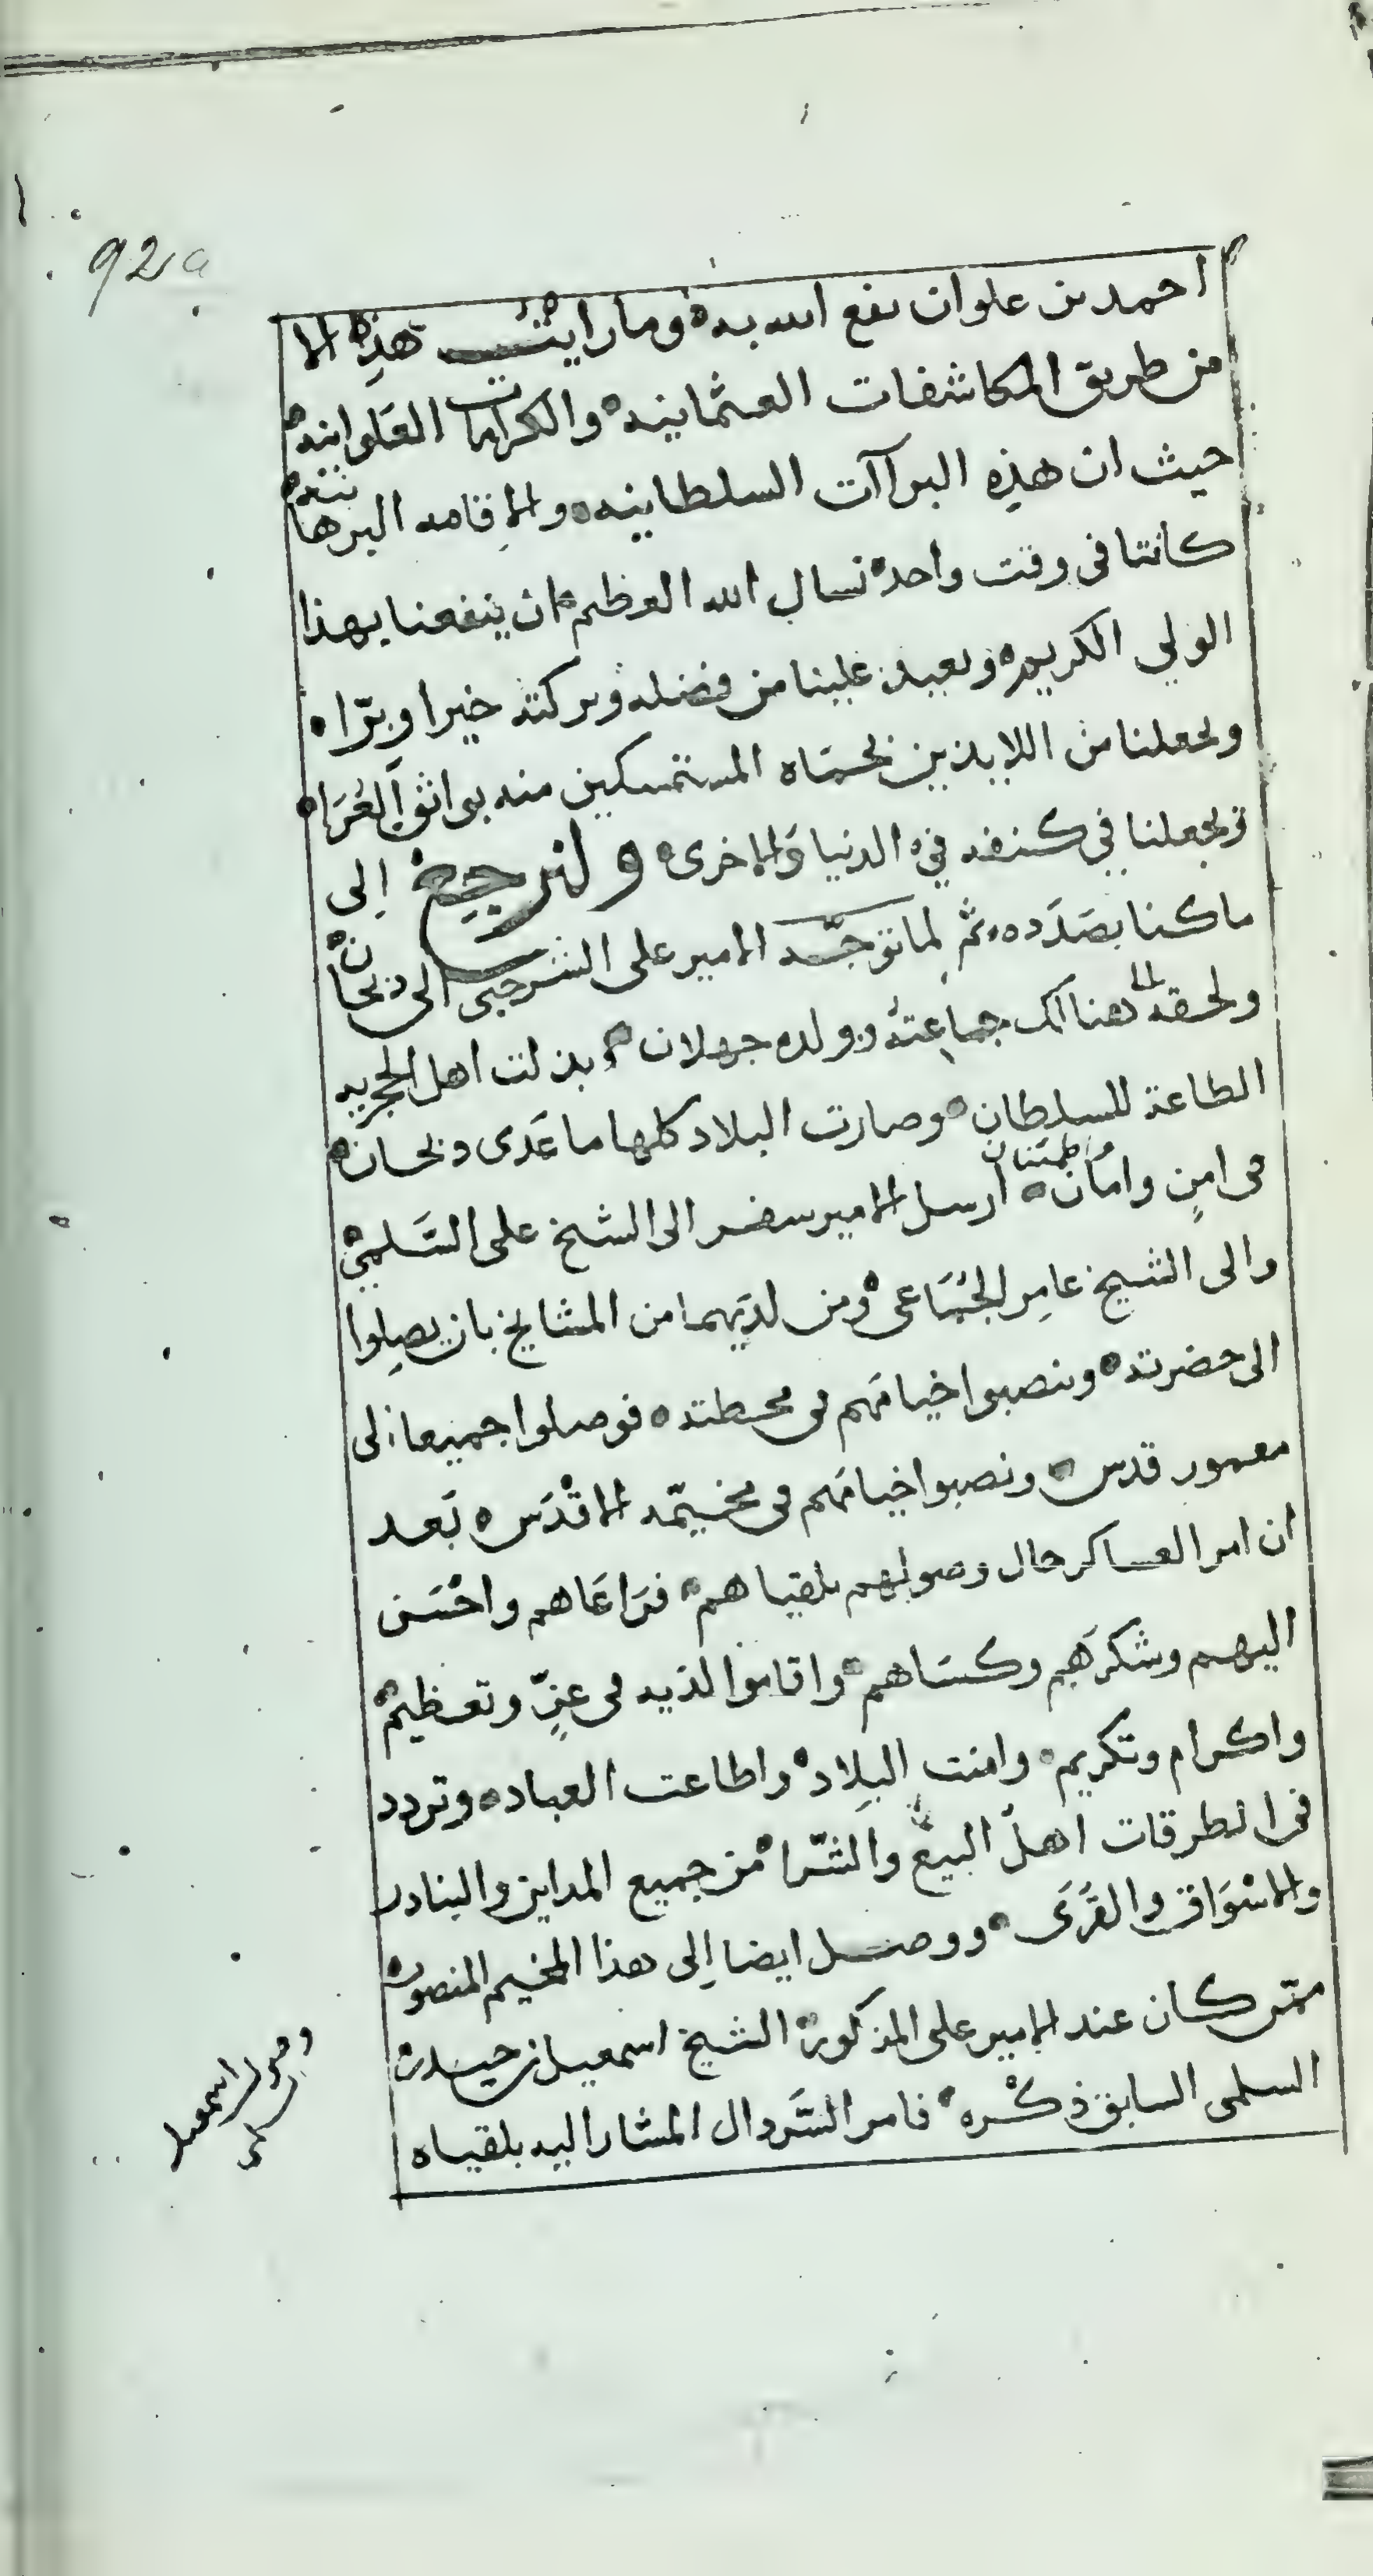 92a
احمد بن علوان نفع الله به وما رايت هذه الا
من طريق المكاشفات العثمانيه والكرامات العلوانيه
حيث ان هذه البراآت السلطانيه والاقامه البرهانيه
كانتا فى وقت واحد نسال الله العظيم ان ينفعنا بهذا
الولي الكريم ويعيد علينا من فضله وبركته خيرا وبرّا
ويجعلنا من اللايذين بحماه المستمسكين منه بواثق العُرَا
ويجعلنا في كنفه في الدنيا والاخرى ولنرجع إلى
ما كنا بصَدَده ثم لما توجّه الامير على الشرجبى الى دبحان
ولحقه الى هنالك جماعته وولده جهلان بذلت اهل الحجريه
الطاعة للسلطان وصارت البلاد كلها ما عَدى دبحان
فى امنٍ وامان واطمئنان ارسل الامير سفر الى الشيخ على السَّلمي
والى الشيخ عامِر الجُمَاعى ومن لديهما من المشايخ بان يصِلوا
الى حضرته وينصبوا خيامَهم فى محطته فوصلوا جميعا إلى
معمور قدس ونصبوا خيامَهم فى مخيّمه الاقْدَس بَعد
ان امر العساكر حال وصولهم بلقياهم فرَاعَاهم واحْسَن
اليهم وشكرَهم وكسَاهم واقاموا لديه فى عزٍّ وتعظيم
واكرام وتكريم وامنت البِلاد واطاعت العباد وتردد
فى الطرقات اهل البيع والشّرا من جميع المداين والبنادر
والاسْوَاق والقُرَى ووصل ايضا إلى هذا المخيم المنصور
ممّن كان عند الامير على المذكور الشيخ اسمعيل بن حيدره
السلمى السابق ذكْره فامر السَّردال المشار اليه بلقياه